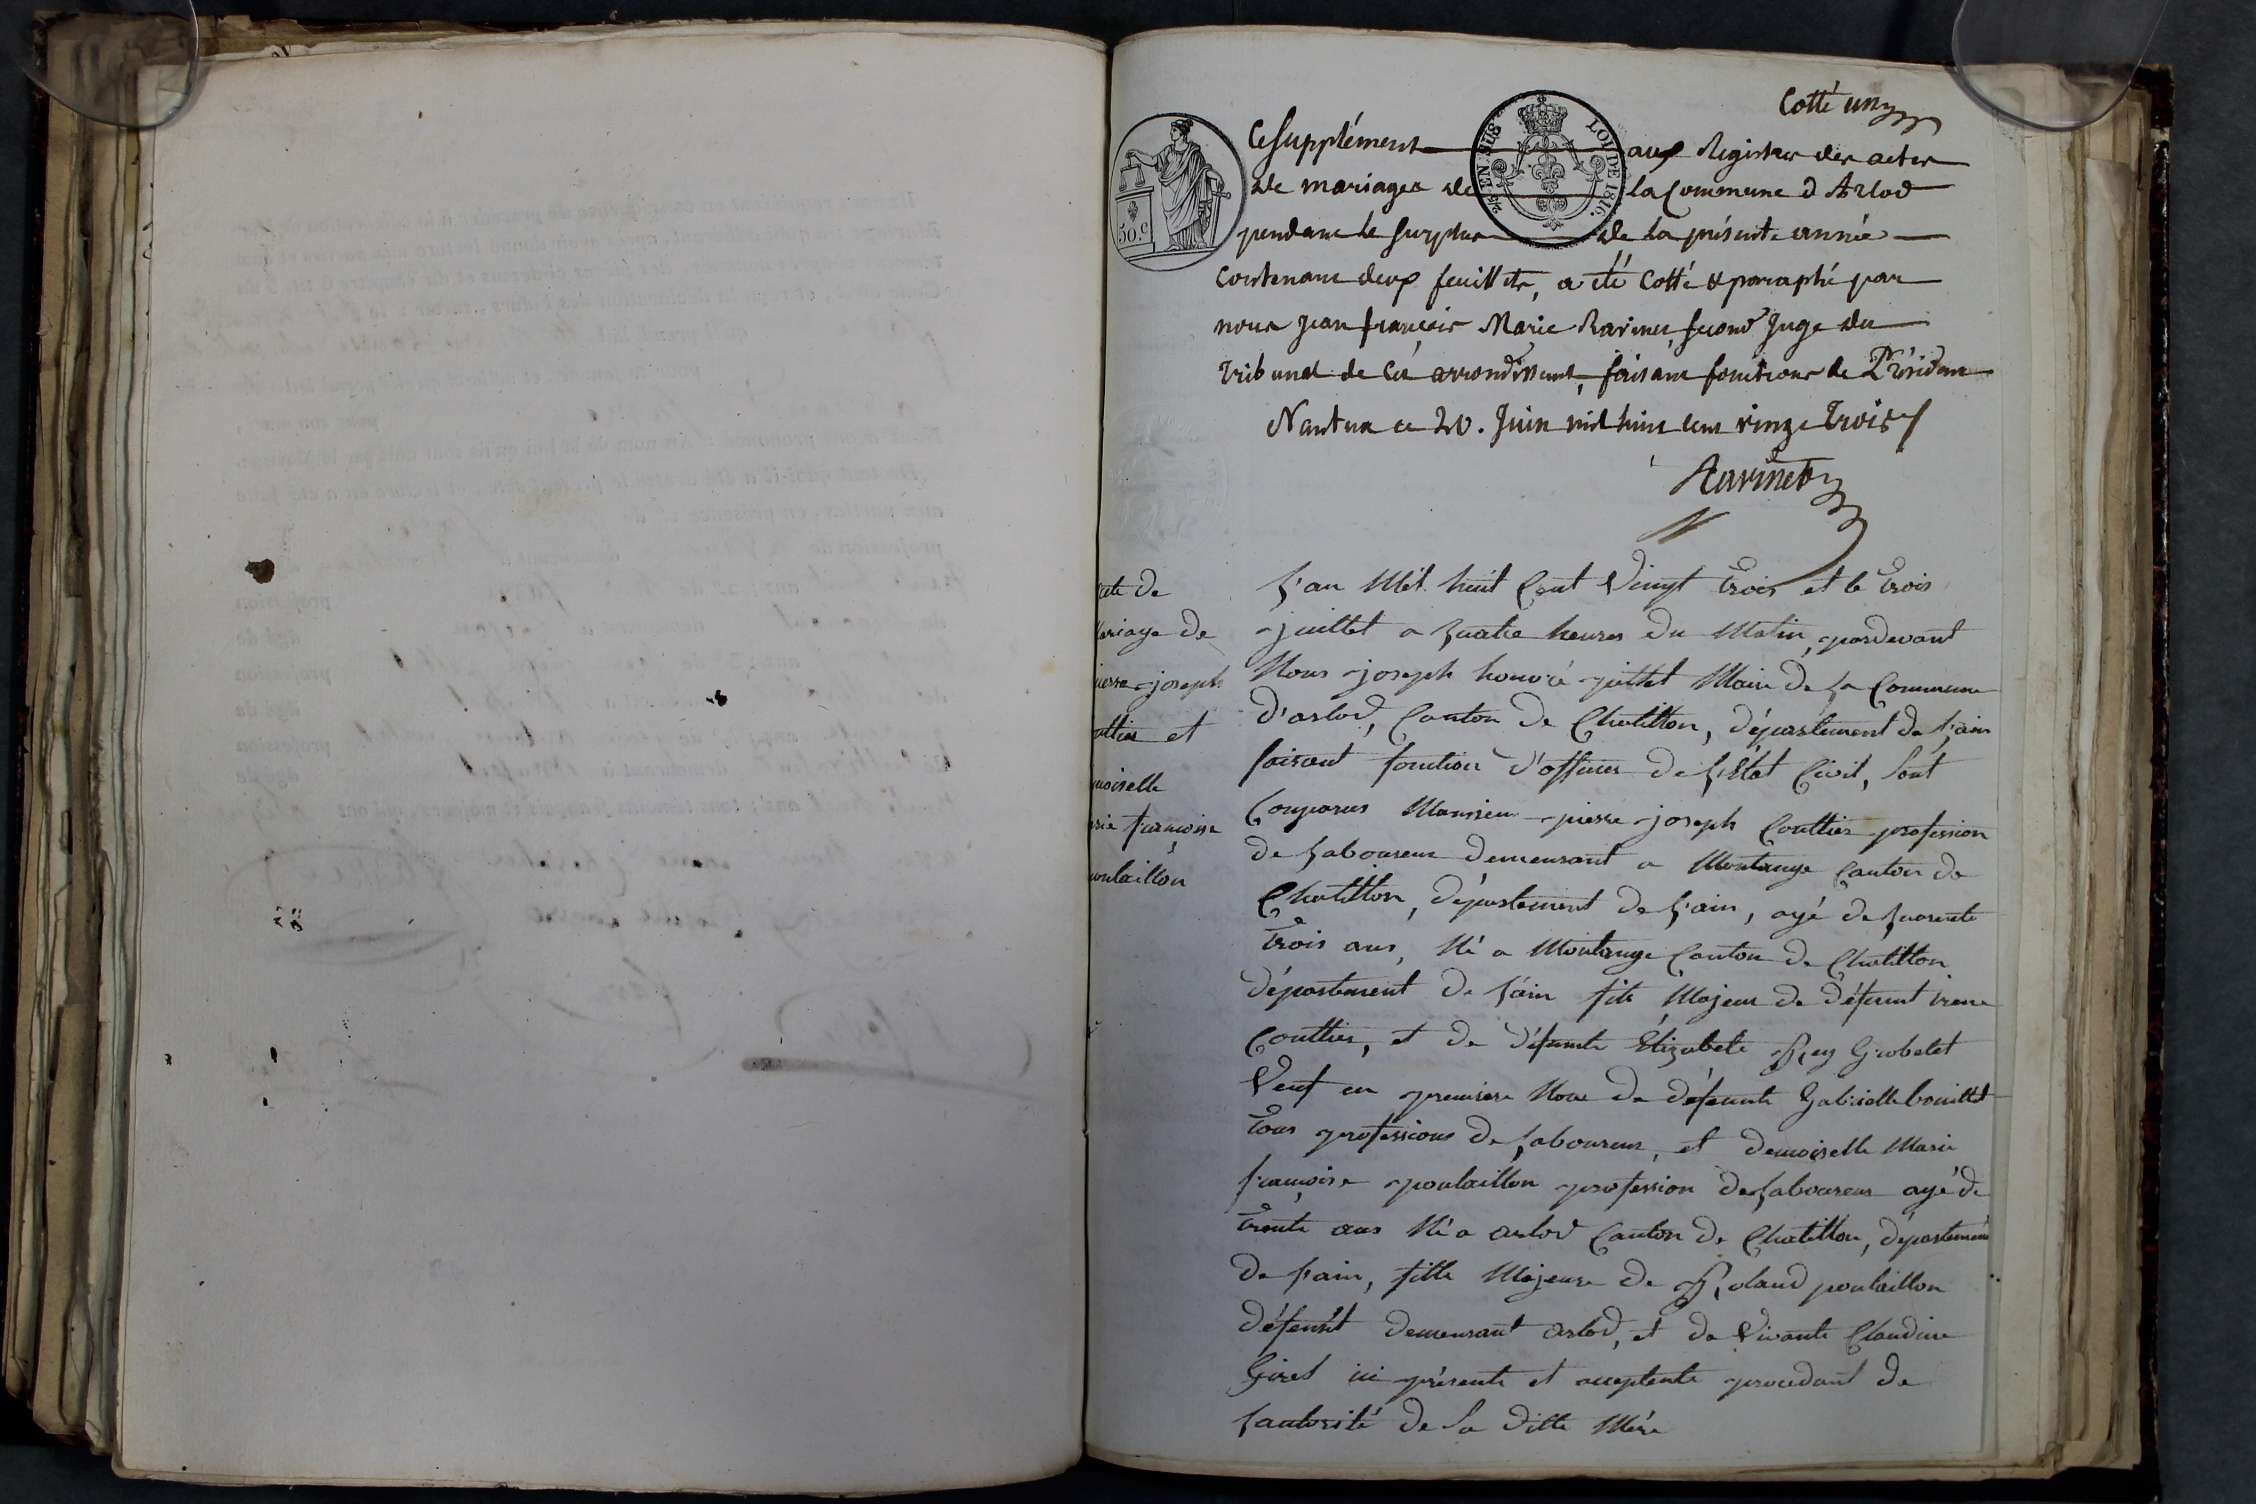 Cotté un
Ce supplément aux Registres des actes
de mariages de la Commune d'Arlod
pendant le surplus de la présente année
Contenant deux feuillets, a été Cotté & paraphé par
nous Jean françois Marie Ravinet, second Juge du
Tribunal de cet arrondissemt, faisant fonctions de Président
Nantua ce 20. Juin mil huit cent vingt trois
Ravinet
50.c
EN SUS
LOI DE 1816.
acte de
Mariage de
pierre joseph
Couttier et
demoiselle
Marie françoise
poulaillon
L'an Mil huit Cent Vingt Trois et le Trois
juillet a quatre heures du Matin, pardevant
Nous joseph honoré juillet Maire de La Commune
d'arlod, Canton de Chatillon, département de L'ain
faisant fonction d'officier de L'État Civil, Sont
Comparus Monsieur pierre joseph Couttier profession
de Laboureur demeurant a Montange Canton de
Chatillon, département de L'ain, agé de quarente
Trois ans, Né a Montange Canton de Chatillon
département de L'ain fils Majeur de défunt
Couttier, et de défunte Élizabete Rey Grobelet
Veuf en premiere Noce de défunte Gabrielle bouillet
Tous professions de Laboureur, et demoiselle Marie
françoise poulaillon profession de Laboureur agé de
Trente ans Né a arlod Canton de Chatillon, département
de L'ain, fille Majeure de Roland poulaillon
défunt demeurant arlod, et de Vivante Claudine
Giret ici présente et acceptente procedant de
Lautorité de La ditte Mére